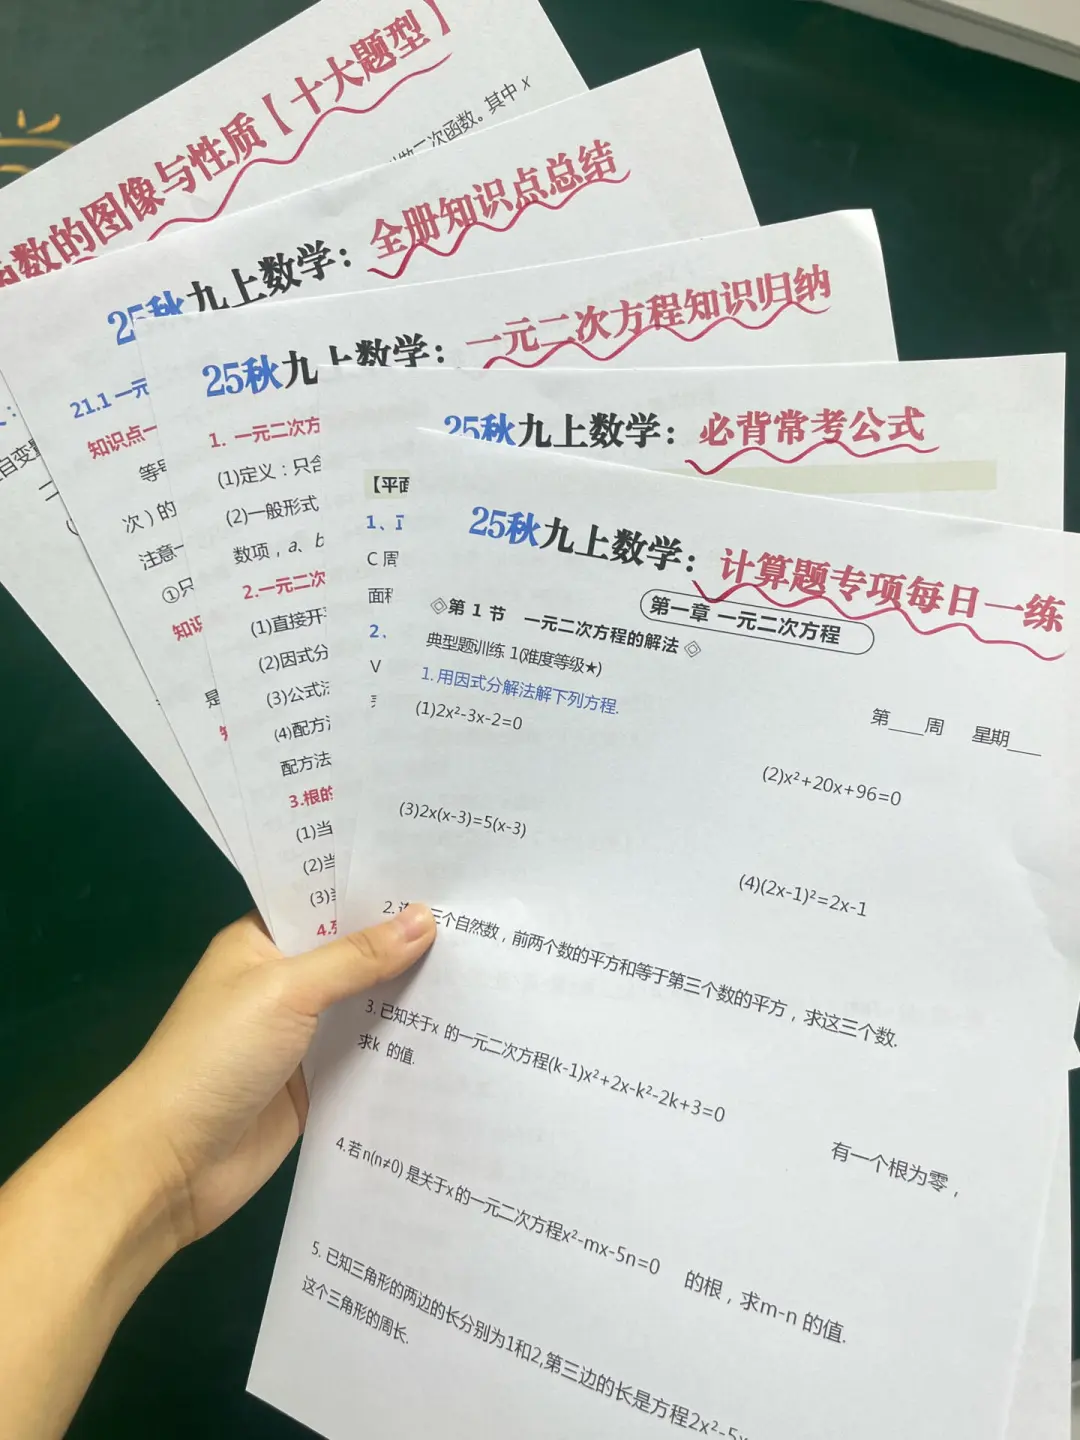 函数的图像与性质【十大题型】
二次函数。其中 x
自变量
25秋九上数学：全册知识点总结
21.1 一元
知识点一
等号
次）的
注意一
①只
知识
是
25秋九上数学：一元二次方程知识归纳
1. 一元二次方
(1)定义：只含
(2)一般形式
数项，a、b
2.一元二次
(1)直接开
(2)因式分
(3)公式法
(4)配方法
配方法
3.根的
(1)当
(2)当
(3)
4.
25秋九上数学：必背常考公式
【平面
1、
C 周
面积
2、
V
25秋九上数学：计算题专项每日一练
第一章 一元二次方程
◇第 1 节 一元二次方程的解法◇
典型题训练 1(难度等级★)
1. 用因式分解法解下列方程.
第____周 星期____
(1)2x²-3x-2=0
(2)x²+20x+96=0
(3)2x(x-3)=5(x-3)
(4)(2x-1)²=2x-1
2. 三个自然数，前两个数的平方和等于第三个数的平方，求这三个数.
3. 已知关于x 的一元二次方程(k-1)x²+2x-k²-2k+3=0 有一个根为零，
求k 的值.
4.若 n(n≠0) 是关于x的一元二次方程x²-mx-5n=0 的根，求m-n 的值.
5. 已知三角形的两边的长分别为1和2,第三边的长是方程2x²-5x
这个三角形的周长.